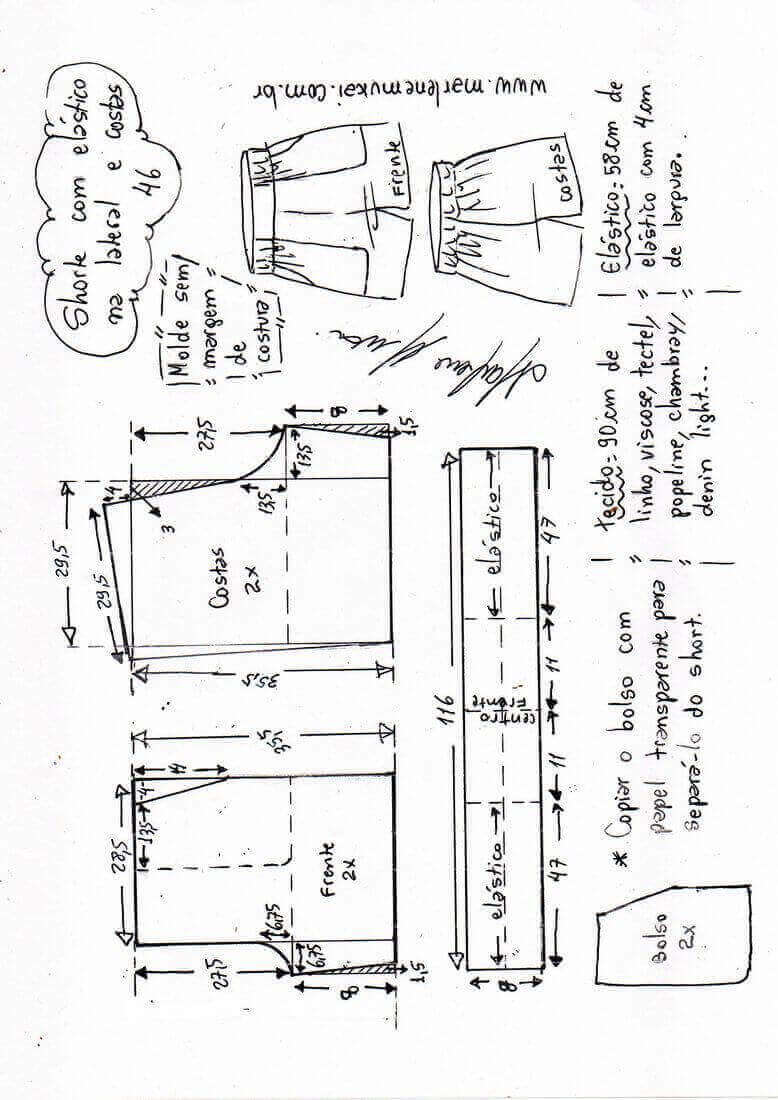 Shorte com elástico
na lateral e costas
46
"Molde sem
margem
de
costura"
www.marlenemukai.com.br
Frente
Costas
27,5
8
1,5
13,5
13,5
4
3
29,5
29,5
Costas
2x
35,5
35,5
14
4
13,5
28,5
Frente
2x
6,75
6,75
27,5
8
1,5
116
elástico
centro
Frente
elástico
47
11
11
47
8
Tecido = 90cm de
linho, viscose, tectel,
popeline, chambray,
denin light...
Elástico = 58cm de
elástico com 4cm
de largura.
* Copiar o bolso com
papel transparente para
separá-lo do short.
Bolso
2x